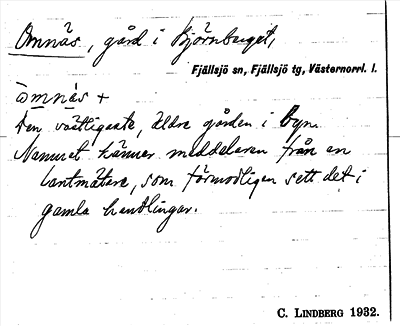 Omnäs, gård i Björnberget,
Fjällsjö sn, Fjällsjö tg, Västernorrl. l.
òmnä̀s +
Den västligaste, äldre gården i byn.
Namnet känner meddelaren från en
lantmätare, som förmodligen sett det i
gamla handlingar.
C. LINDBERG 1932.